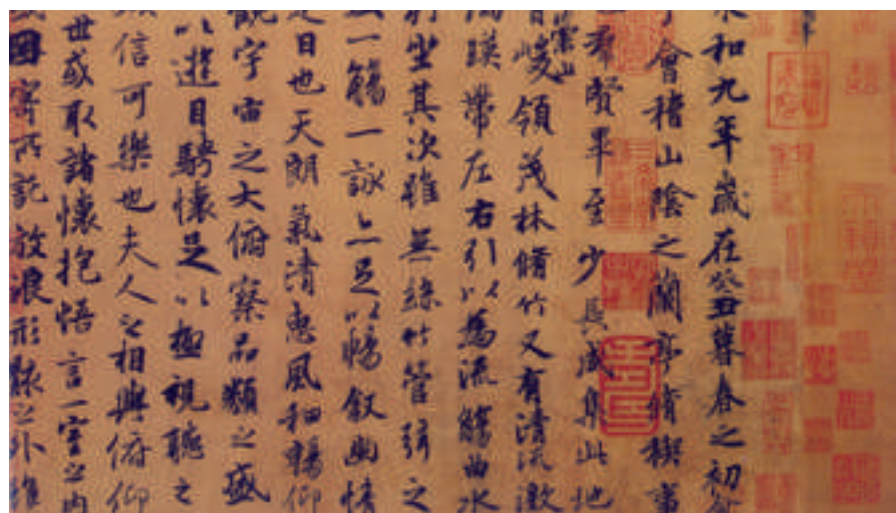 永和九年歲在癸丑暮春之初會
于會稽山陰之蘭亭脩稧事
羣賢畢至少長咸集此地
有崇山峻領茂林脩竹又有清流激
湍暎帶左右引以為流觴曲水
列坐其次雖無絲竹管弦之
盛一觴一詠亦足以暢敘幽情
是日也天朗氣清惠風和暢仰
觀宇宙之大俯察品類之盛
以遊目騁懷足以極視聽之
娛信可樂也夫人之相與俯仰
世或取諸懷抱悟言一室之內
因寄所託放浪形骸之外雖